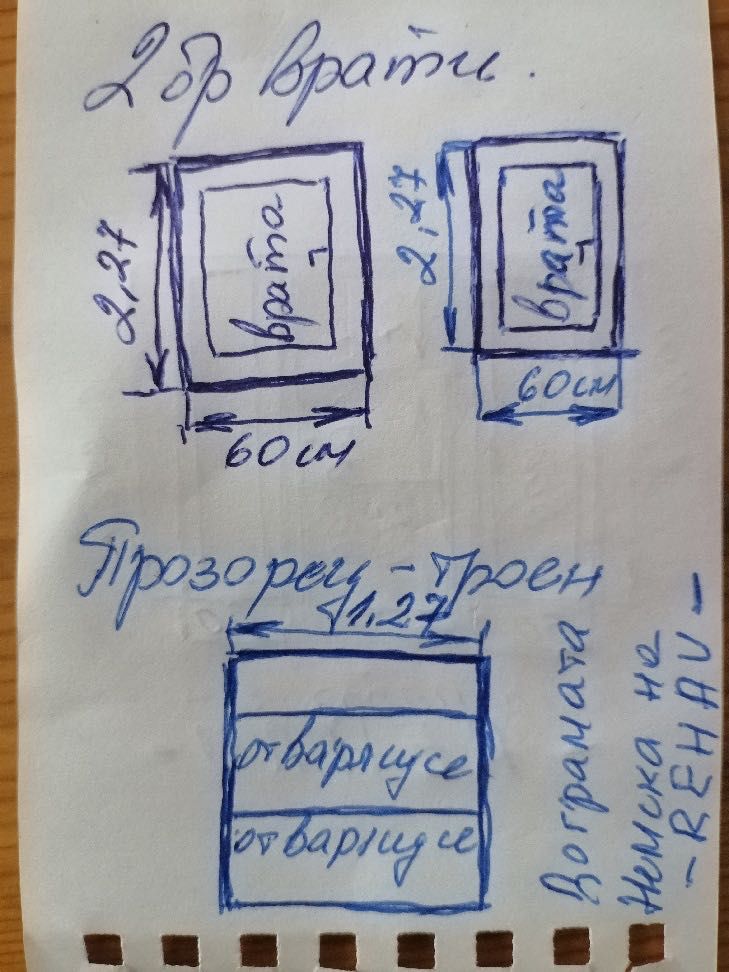 2 бр врати.
2,27
врата
60см
2,27
врата
60см
Прозорец - троен
1.27
отварящусе
отварящусе
Дограмата
Немска на
- REHAU -